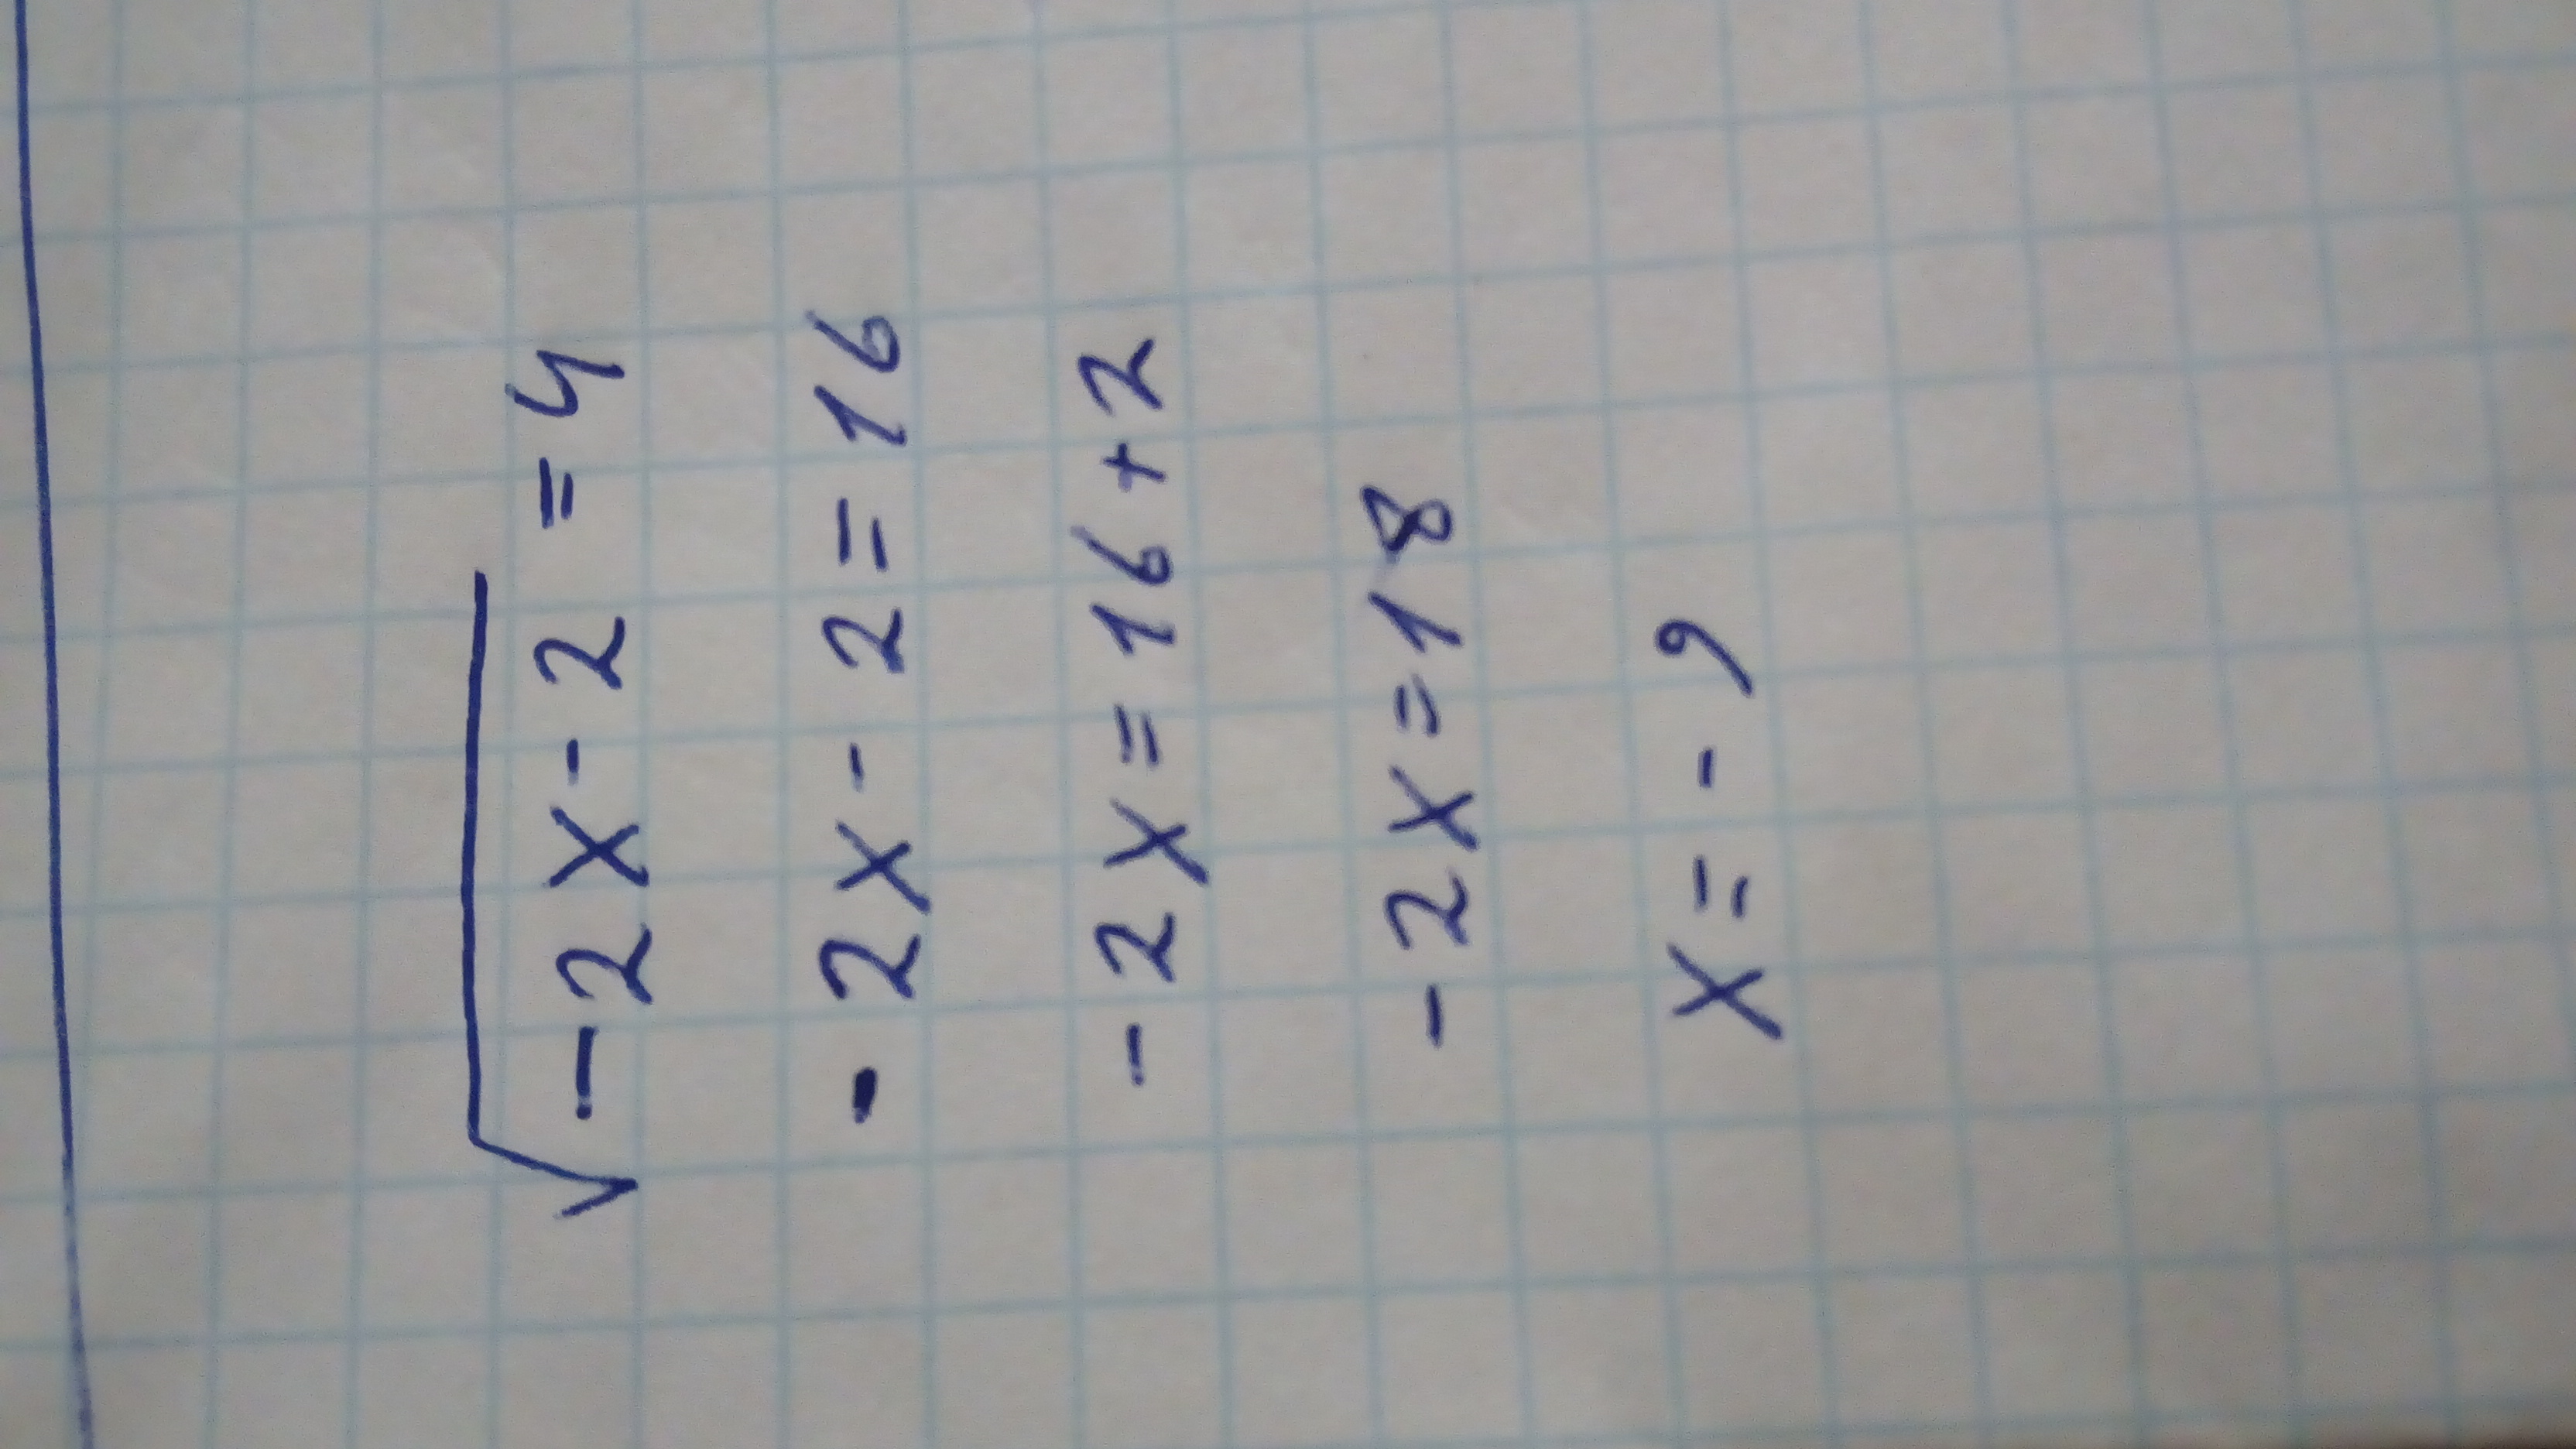 √-2x-2 = 4
-2x-2=16
-2x=16+2
-2x=18
x=-9